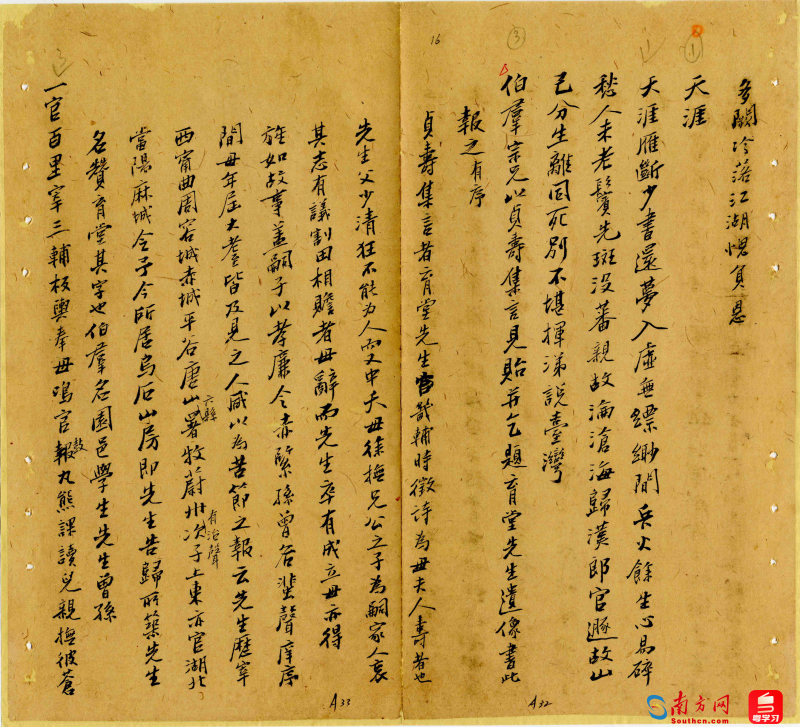 多關冷落江湖愧負恩
天涯
天涯雁斷少書還夢入虛無縹緲間兵火餘生心易碎
愁人未老鬢先斑沒蕃親故淪滄海歸漢郎官遯故山
已分生離同死別不堪揮涕說臺灣
伯羣宗兄以貞壽集言見貽并乞題育堂先生遺像書此
報之有序
貞壽集言者育堂先生官畿輔時徵詩為母夫人壽者也
先生父少清狂不能为人而又中夭母徐撫兄公之子為嗣家人哀
其志有議割田相贍者母辭而先生卒有成立母亦得
旌如故事蓋嗣子以孝廉令赤緊孫曾名蜚聲庠序
間母年屆大耋皆及見之人咸以為苦節之報云先生歷宰
西甯曲周容城赤城平谷唐山六縣署牧蔚州有治聲次子上東亦官湖北
當陽麻城令予今所居烏石山房即先生告歸所築先生
名贊育堂其字也伯羣名園邑學生先生曾孫
一官百里宰三輔板輿奉母鳴官報丸熊課讀兒親撫彼蒼
16
③
①
A33
A32
南方网
Southcn.com
粤学习